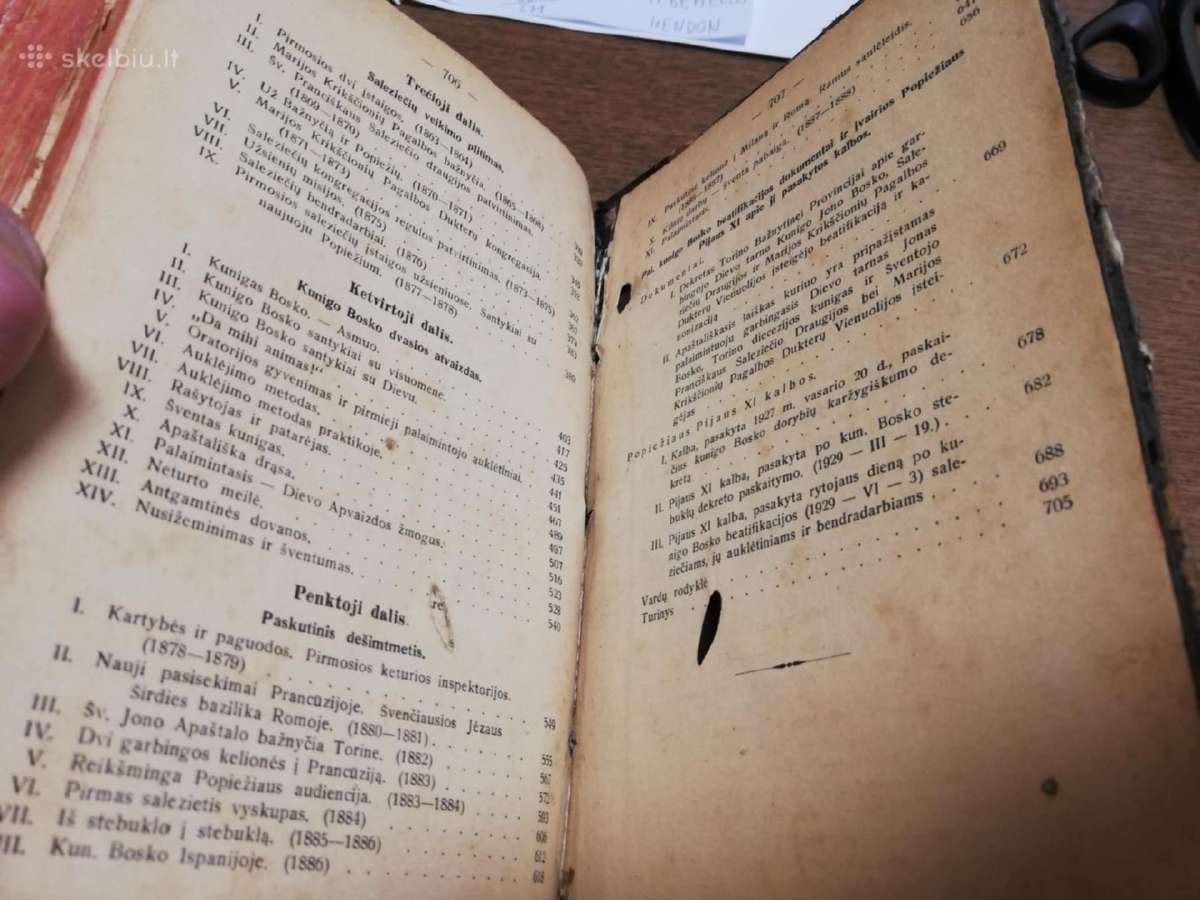 skelbiu.lt
HENDON
— 706 —
Trečioji dalis.
Saleziečių veikimo plitimas.
I. Pirmosios dvi įstaigos. (1863—1864)
II. Marijos Krikščionių Pagalbos bažnyčia. (1865—1868)
III. Šv. Pranciškaus Saleziečio draugijos patvirtinimas.
(1869—1870)
IV. Už Bažnyčią ir Popiežių. (1870—1871)
V. Marijos Krikščionių Pagalbos Dukterų kongregacija.
(1871—1873)
VI. Saleziečių kongregacijos regulos patvirtinimas. (1873—1875)
VII. Užsienių misijos. (1875)
VIII. Saleziečių bendradarbiai. (1876)
IX. Pirmosios saleziečių įstaigos užsieniuose. Santykiai su
naujuoju Popiežium. (1877—1878) 389
Ketvirtoji dalis.
Kunigo Bosko dvasios atvaizdas.
I. Kunigas Bosko. — Asmuo. 403
II. Kunigo Bosko santykiai su visuomene. 417
III. Kunigo Bosko santykiai su Dievu. 425
IV. „Da mihi animas!“ 435
V. Oratorijos gyvenimas ir pirmieji palaimintojo auklėtiniai. 441
VI. Auklėjimo metodas. 451
VII. Auklėjimo metodas praktikoje. 467
VIII. Rašytojas ir patarėjas. 489
IX. Šventas kunigas. 497
X. Apaštališka drąsa. 507
XI. Palaimintasis — Dievo Apvaizdos žmogus. 516
XII. Neturto meilė. 523
XIII. Antgamtinės dovanos. 528
XIV. Nusižeminimas ir šventumas. 540
Penktoji dalis.
Paskutinis dešimtmetis.
I. Kartybės ir paguodos. Pirmosios keturios inspektorijos.
(1878—1879) 549
II. Nauji pasisekimai Prancūzijoje. Švenčiausios Jėzaus
Širdies bazilika Romoje. (1880—1881) 555
III. Šv. Jono Apaštalo bažnyčia Torine. (1882) 567
IV. Dvi garbingos kelionės į Prancūziją. (1883) 572
V. Reikšminga Popiežiaus audiencija. (1883—1884) 593
VI. Pirmas salezietis vyskupas. (1884) 606
VII. Iš stebuklo į stebuklą. (1885—1886) 612
III. Kun. Bosko Ispanijoje. (1886) 618
— 707 —
IX. Paskutinė kelionė į Milaną ir Romą. Ramus saulėleidis.
(1886—1887)
X. Kilnių darbų — šventa pabaiga. (1887—1888) 636
XI. Palaimintasis.
Pal. kunigo Bosko beatifikacijos dokumentai ir įvairios Popiežiaus
Pijaus XI apie jį pasakytos kalbos.
Dokumentai.
I. Dekretas Torino Bažnytinei Provincijai apie gar-
bingojo Dievo tarno Kunigo Jono Bosko, Sale-
ziečių Draugijos ir Marijos Krikščionių Pagalbos
Dukterų Vienuolijos įsteigėjo beatifikaciją ir ka-
nonizaciją 669
II. Apaštališkasis laiškas kuriuo yra pripažįstamas
palaimintuoju garbingasis Dievo tarnas Jonas
Bosko, Torino diecezijos kunigas ir Šventojo
Pranciškaus Saleziečio Draugijos bei Marijos
Krikščionių Pagalbos Dukterų Vienuolijos įstei-
gėjas 672
Popiežiaus Pijaus XI kalbos.
I. Kalba, pasakyta 1927 m. vasario 20 d., paskai-
čius kunigo Bosko dorybių karžygiškumo de-
kretą 678
II. Pijaus XI kalba, pasakyta po kun. Bosko ste-
buklų dekreto paskaitymo. (1929 — III — 19.) 682
III. Pijaus XI kalba, pasakyta rytojaus dieną po ku-
nigo Bosko beatifikacijos (1929 — VI — 3) sale-
ziečiams, jų auklėtiniams ir bendradarbiams 688
Vardų rodyklė 693
Turinys 705